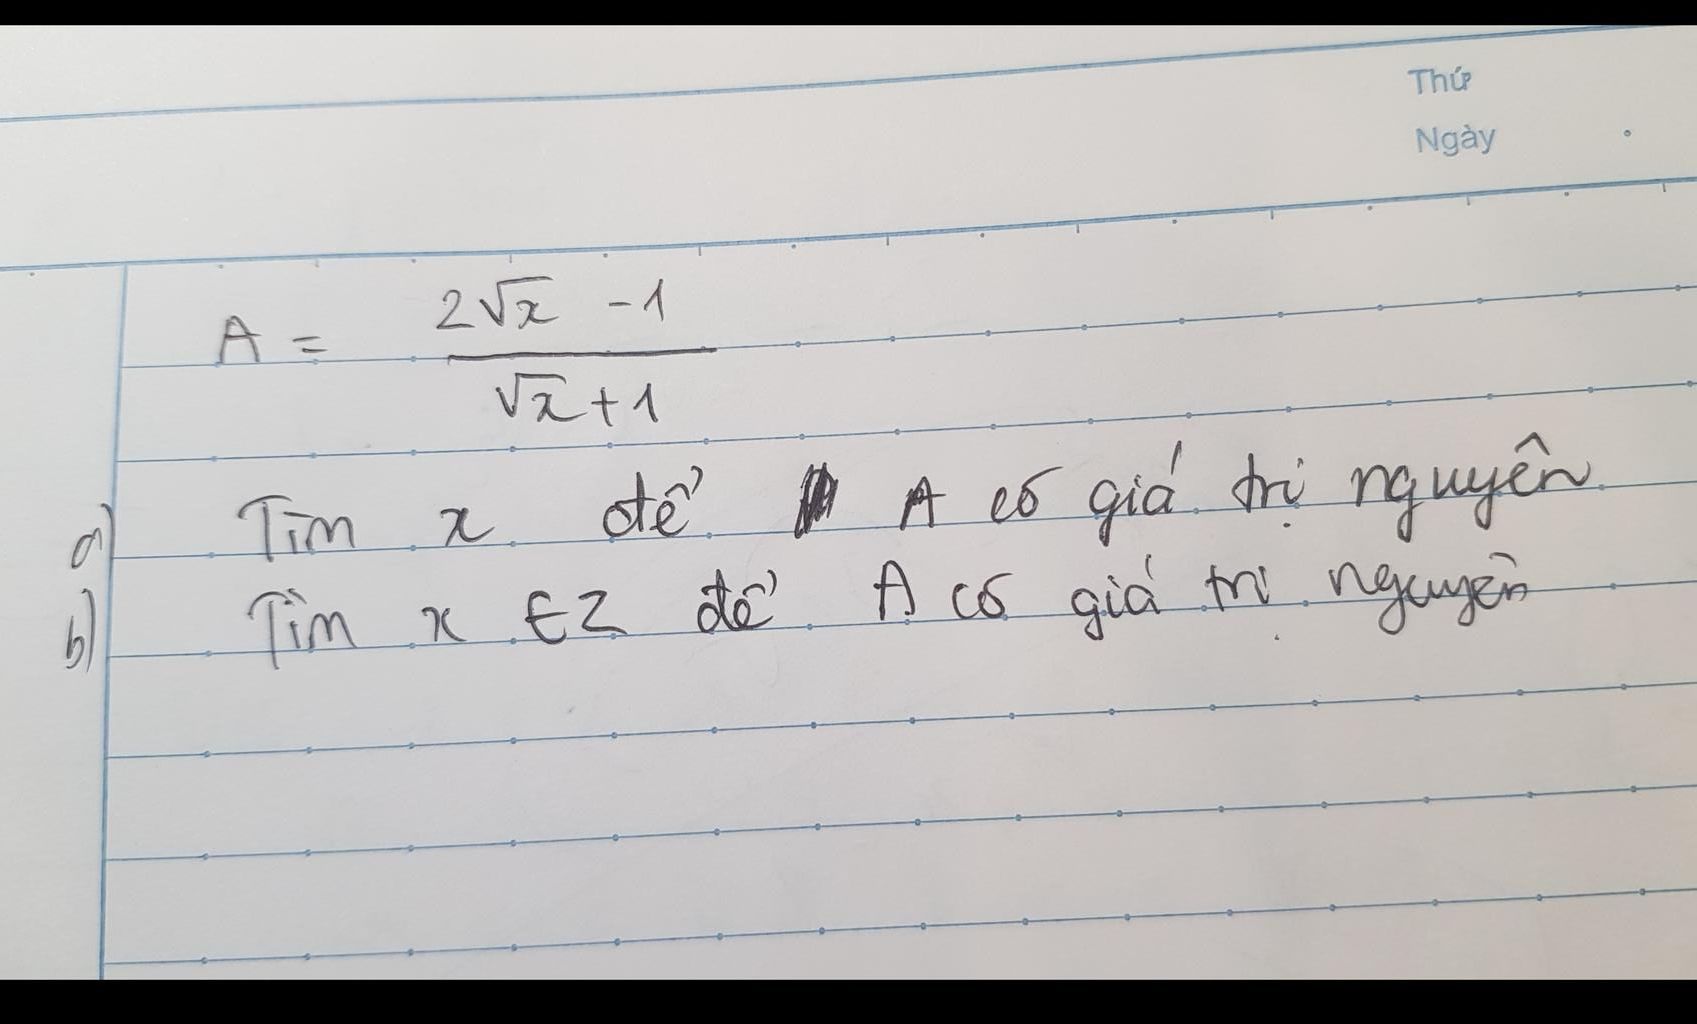 Thứ
Ngày
A = \frac{2\sqrt{x} - 1}{\sqrt{x} + 1}
a) Tìm x để A có giá trị nguyên
b) Tìm x ∈ Z để A có giá trị nguyên